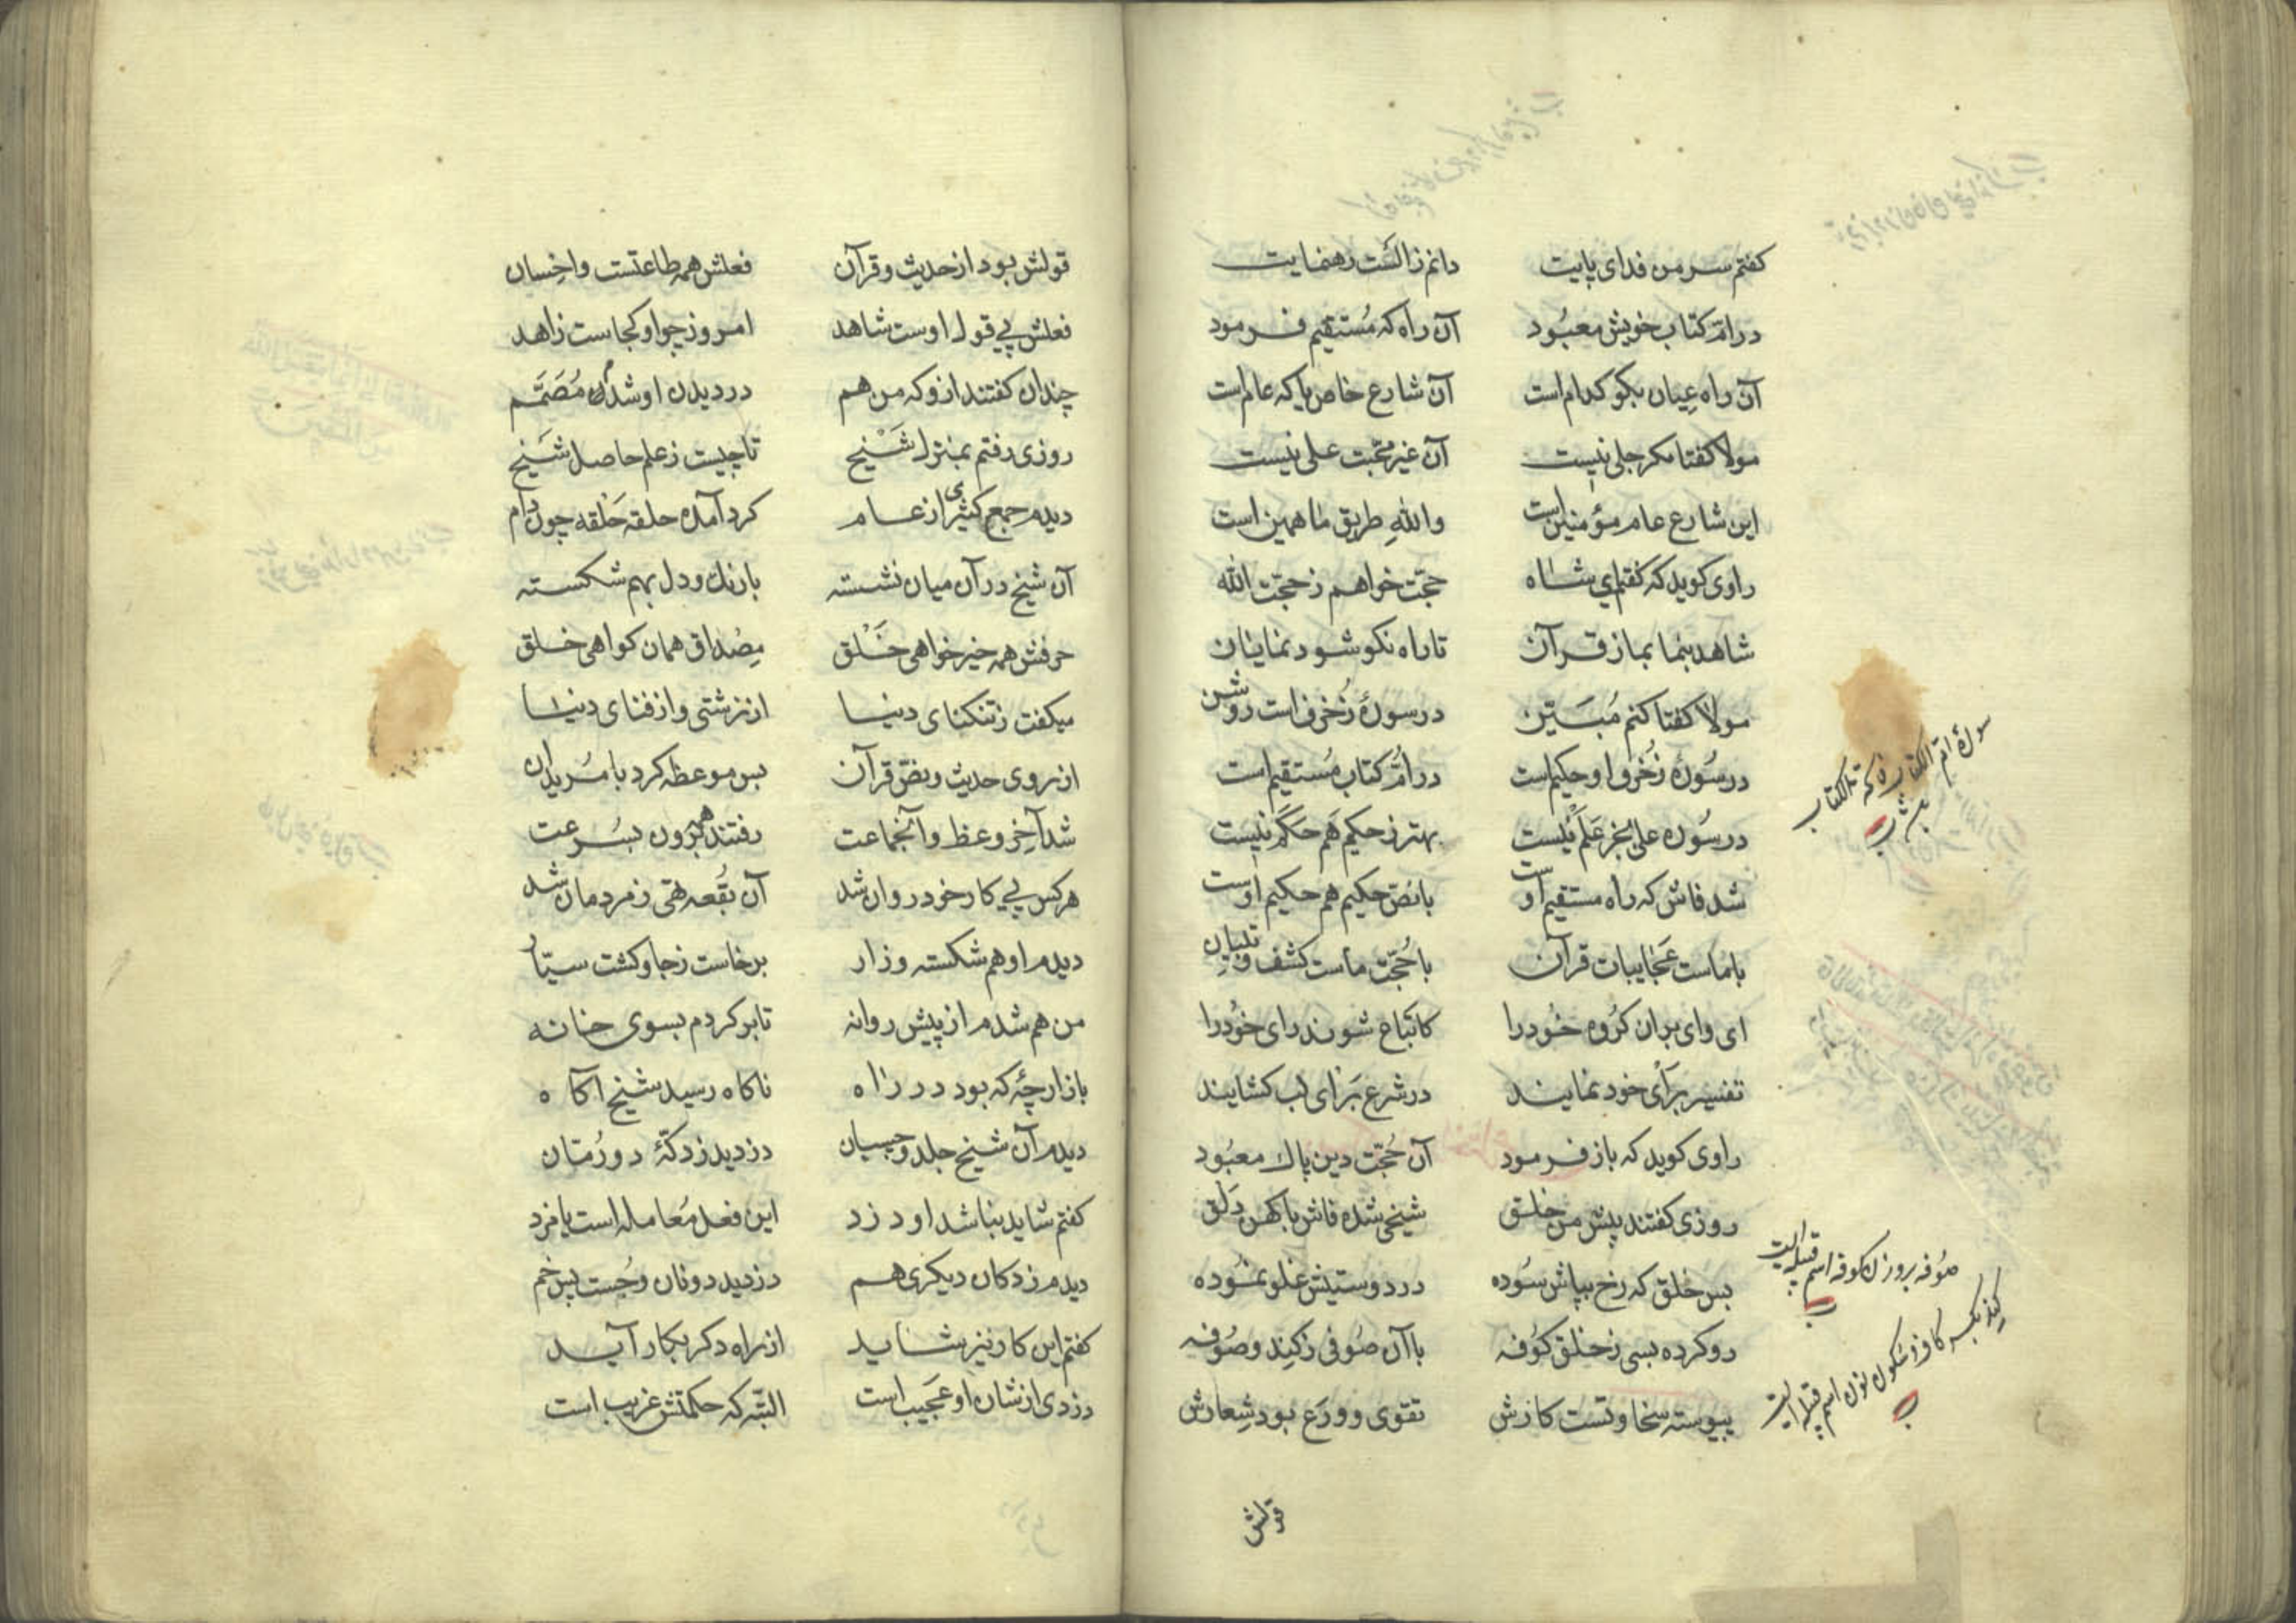 کفتم سر من فدای پایت دانم ز الست رهنمایت
در امّ کتاب خویش معبُود آن راه که مُستقیم فرمود
آن راه عِیان بکو کدام است آن شارع خاص یا که عام است
مولا کفتا مکر جلی نیست آن غیر محبت علی نیست
این شارع عام مؤمنین است والله طریق ما همین است
راوی کوید که کفتم ای شاه حجّت خواهم ز حجّت الله
شاهد بنما بما ز قرآن تا راه نکو شود نمایان
مولا کفتا کنم مُبَیّن در سورهٔ زُخرف است روشن
در سُوره زُخرف او حکیم است در امُّ کتاب مُستقیم است
در سُوره علی بجز عَلَم نیست بهتر ز حکیم هَم حَکَم نیست
شد فاش که راه مستقیم اوست با نصّ حکیم هم حکیم اوست
با ماست عَجٰایبات قرآن با حُجّت ماست کشف و تبیان
ای وای بران کرُوه خُود را کاتباع شوند رای خوُد را
تفسیر برأی خود نمایند در شرع بَرٰای لب کشایند
راوی کوید که باز فرمود آن حُجّت دین پاك معبُود
روزی کفتند پیش من خلق شیخی شده فاش با کهن دَلق
بس خلق که رخ بپاش سُوده در دوستیش غلو نمُوده
رو کرده بسی ز خلق کوُفه با آن صُوفی ز کِند و صُوفه
پیوسته سخاوتست کارش تقوی و وَرَع بود شِعارش
سورهٔ امّ الکتاب
صُوفه بر وزن کوفه اسم قبیله ایست
کِند بکسر کاف و سکون نون اسم قبیله ایست
قولش
قولش بود از حدیث و قرآن فعلش همه طاعتست و احِسان
فعلش پی قول اوست شاهد امروز چو او کجاست زاهد
چندان کفتند ازو که من هم در دیدن او شدم مُصَمَّم
روزی رفتم بمنزل شَیْخ تا چیست ز علم حاصل شَیخ
دیدم جمع کثیری از عام کرد آمده حلقه حَلقه چون دام
آن شیخ در آن میان نشسته با رنك و دل بهم شکسته
حرفش همه خیر خواهی خَلْق مِصْداق همان کواهی خلق
میکفت ز تنکنای دنیا از زشتی و از فنای دنیا
از روی حدیث و نصّ قرآن بس موعظه کرد با مُریدان
شد آخِر وعظ و آنجماعت رفتند همه برون بسُرعت
هر کس پی کار خود روان شد آن بُقعه تهی ز مردمان شد
دیدم او هم شکسته و زار برخاست ز جا و کشت سیّار
من هم شدم از پیش روانه تا بر کردم بسوی خانه
بازارچهٔ که بود در راه ناکاه رسید شیخ آکاه
دیدم آن شیخ جلد و چسبان دزدید ز دکّهٔ دو رُمّان
کفتم شاید نباشد او دزد این فعل مُعامله است با مزد
دیدم ز دکان دیکری هم دزدید دو نان و جُست پس خم
کفتم این کار نیز شاید از راه دکر بکار آید
دزدی از شان او عَجَیب است البتّه که حکمتش غریب است